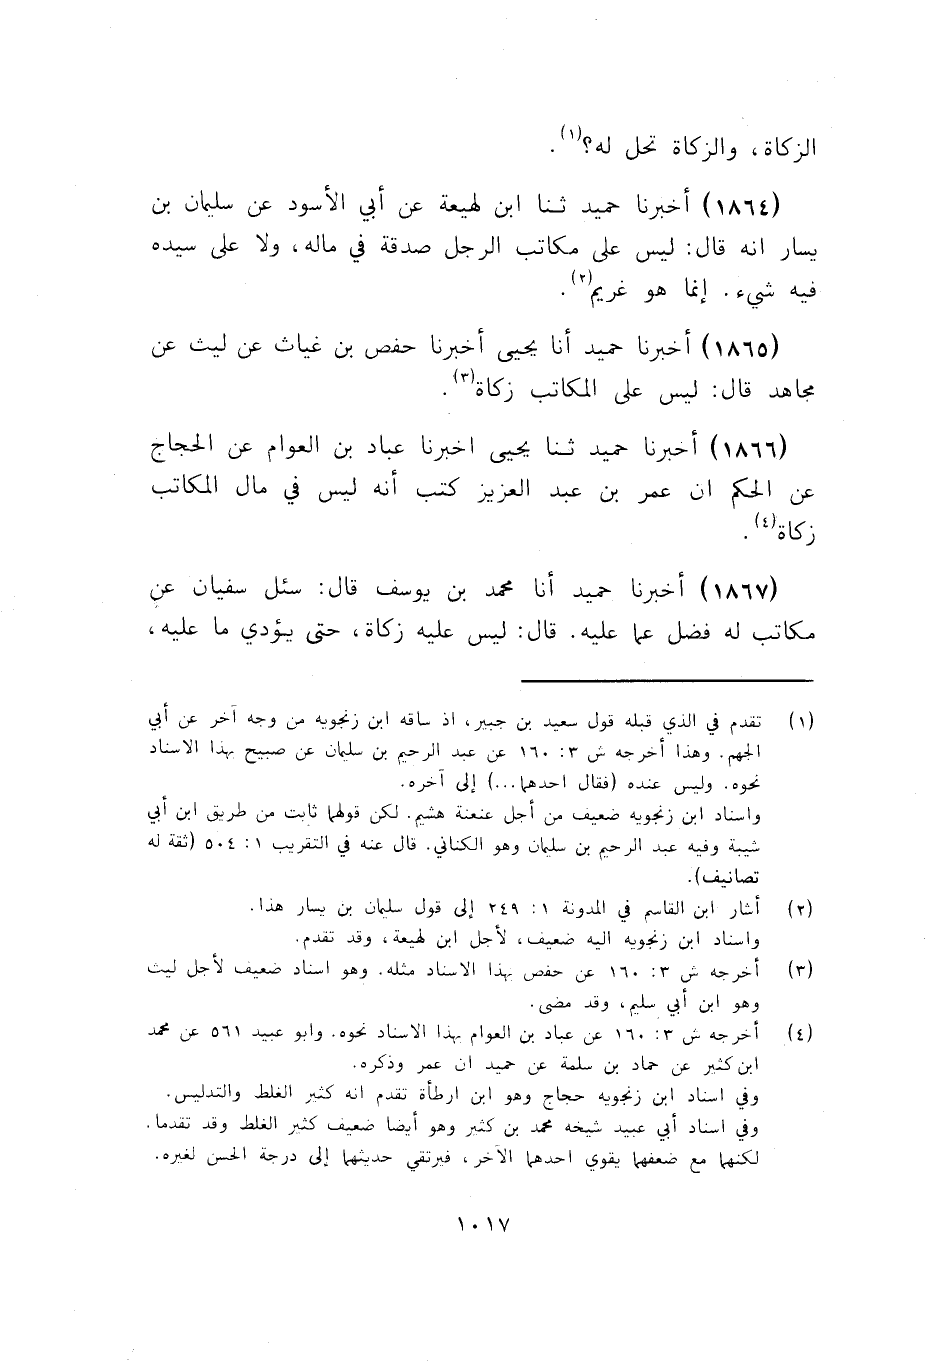 الزكاة، والزكاة تحل له؟(١).
(١٨٦٤) أخبرنا حميد ثنا ابن لهيعة عن أبي الأسود عن سليمان بن
يسار انه قال: ليس على مكاتب الرجل صدقة في ماله، ولا على سيده
فيه شيء. إنما هو غريم(٢).
(١٨٦٥) أخبرنا حميد أنا يحيى أخبرنا حفص بن غياث عن ليث عن
مجاهد قال: ليس على المكاتب زكاة(٣).
(١٨٦٦) أخبرنا حميد ثنا يحيى اخبرنا عباد بن العوام عن الحجاج
عن الحكم ان عمر بن عبد العزيز كتب أنه ليس في مال المكاتب
زكاة(٤).
(١٨٦٧) أخبرنا حميد أنا محمد بن يوسف قال: سئل سفيان عن
مكاتب له فضل عما عليه. قال: ليس عليه زكاة، حتى يؤدي ما عليه،
(١) تقدم في الذي قبله قول سعيد بن جبير، اذ ساقه ابن زنجويه من وجه آخر عن أبي
الجهم. وهذا أخرجه ش ٣: ١٦٠ عن عبد الرحيم بن سليمان عن صبيح بهذا الاسناد
نحوه. وليس عنده (فقال احدهما...) إلى آخره.
واسناد ابن زنجويه ضعيف من أجل عنعنة هشيم. لكن قولهما ثابت من طريق ابن أبي
شيبة وفيه عبد الرحيم بن سليمان وهو الكناني. قال عنه في التقريب ١: ٥٠٤ (ثقة له
تصانيف).
(٢) أشار ابن القاسم في المدونة ١: ٢٤٩ إلى قول سليمان بن يسار هذا.
واسناد ابن زنجويه اليه ضعيف، لأجل ابن لهيعة، وقد تقدم.
(٣) أخرجه ش ٣: ١٦٠ عن حفص بهذا الاسناد مثله. وهو اسناد ضعيف لأجل ليث
وهو ابن أبي سليم، وقد مضى.
(٤) أخرجه ش ٣: ١٦٠ عن عباد بن العوام بهذا الاسناد نحوه. وابو عبيد ٥٦١ عن محمد
ابن كثير عن حماد بن سلمة عن حميد ان عمر وذكره.
وفي اسناد ابن زنجويه حجاج وهو ابن ارطأة تقدم انه كثير الغلط والتدليس.
وفي اسناد أبي عبيد شيخه محمد بن كثير وهو أيضا ضعيف كثير الغلط وقد تقدما.
لكنهما مع ضعفهما يقوي احدهما الآخر، فيرتقي حديثهما إلى درجة الحسن لغيره.
١٠١٧